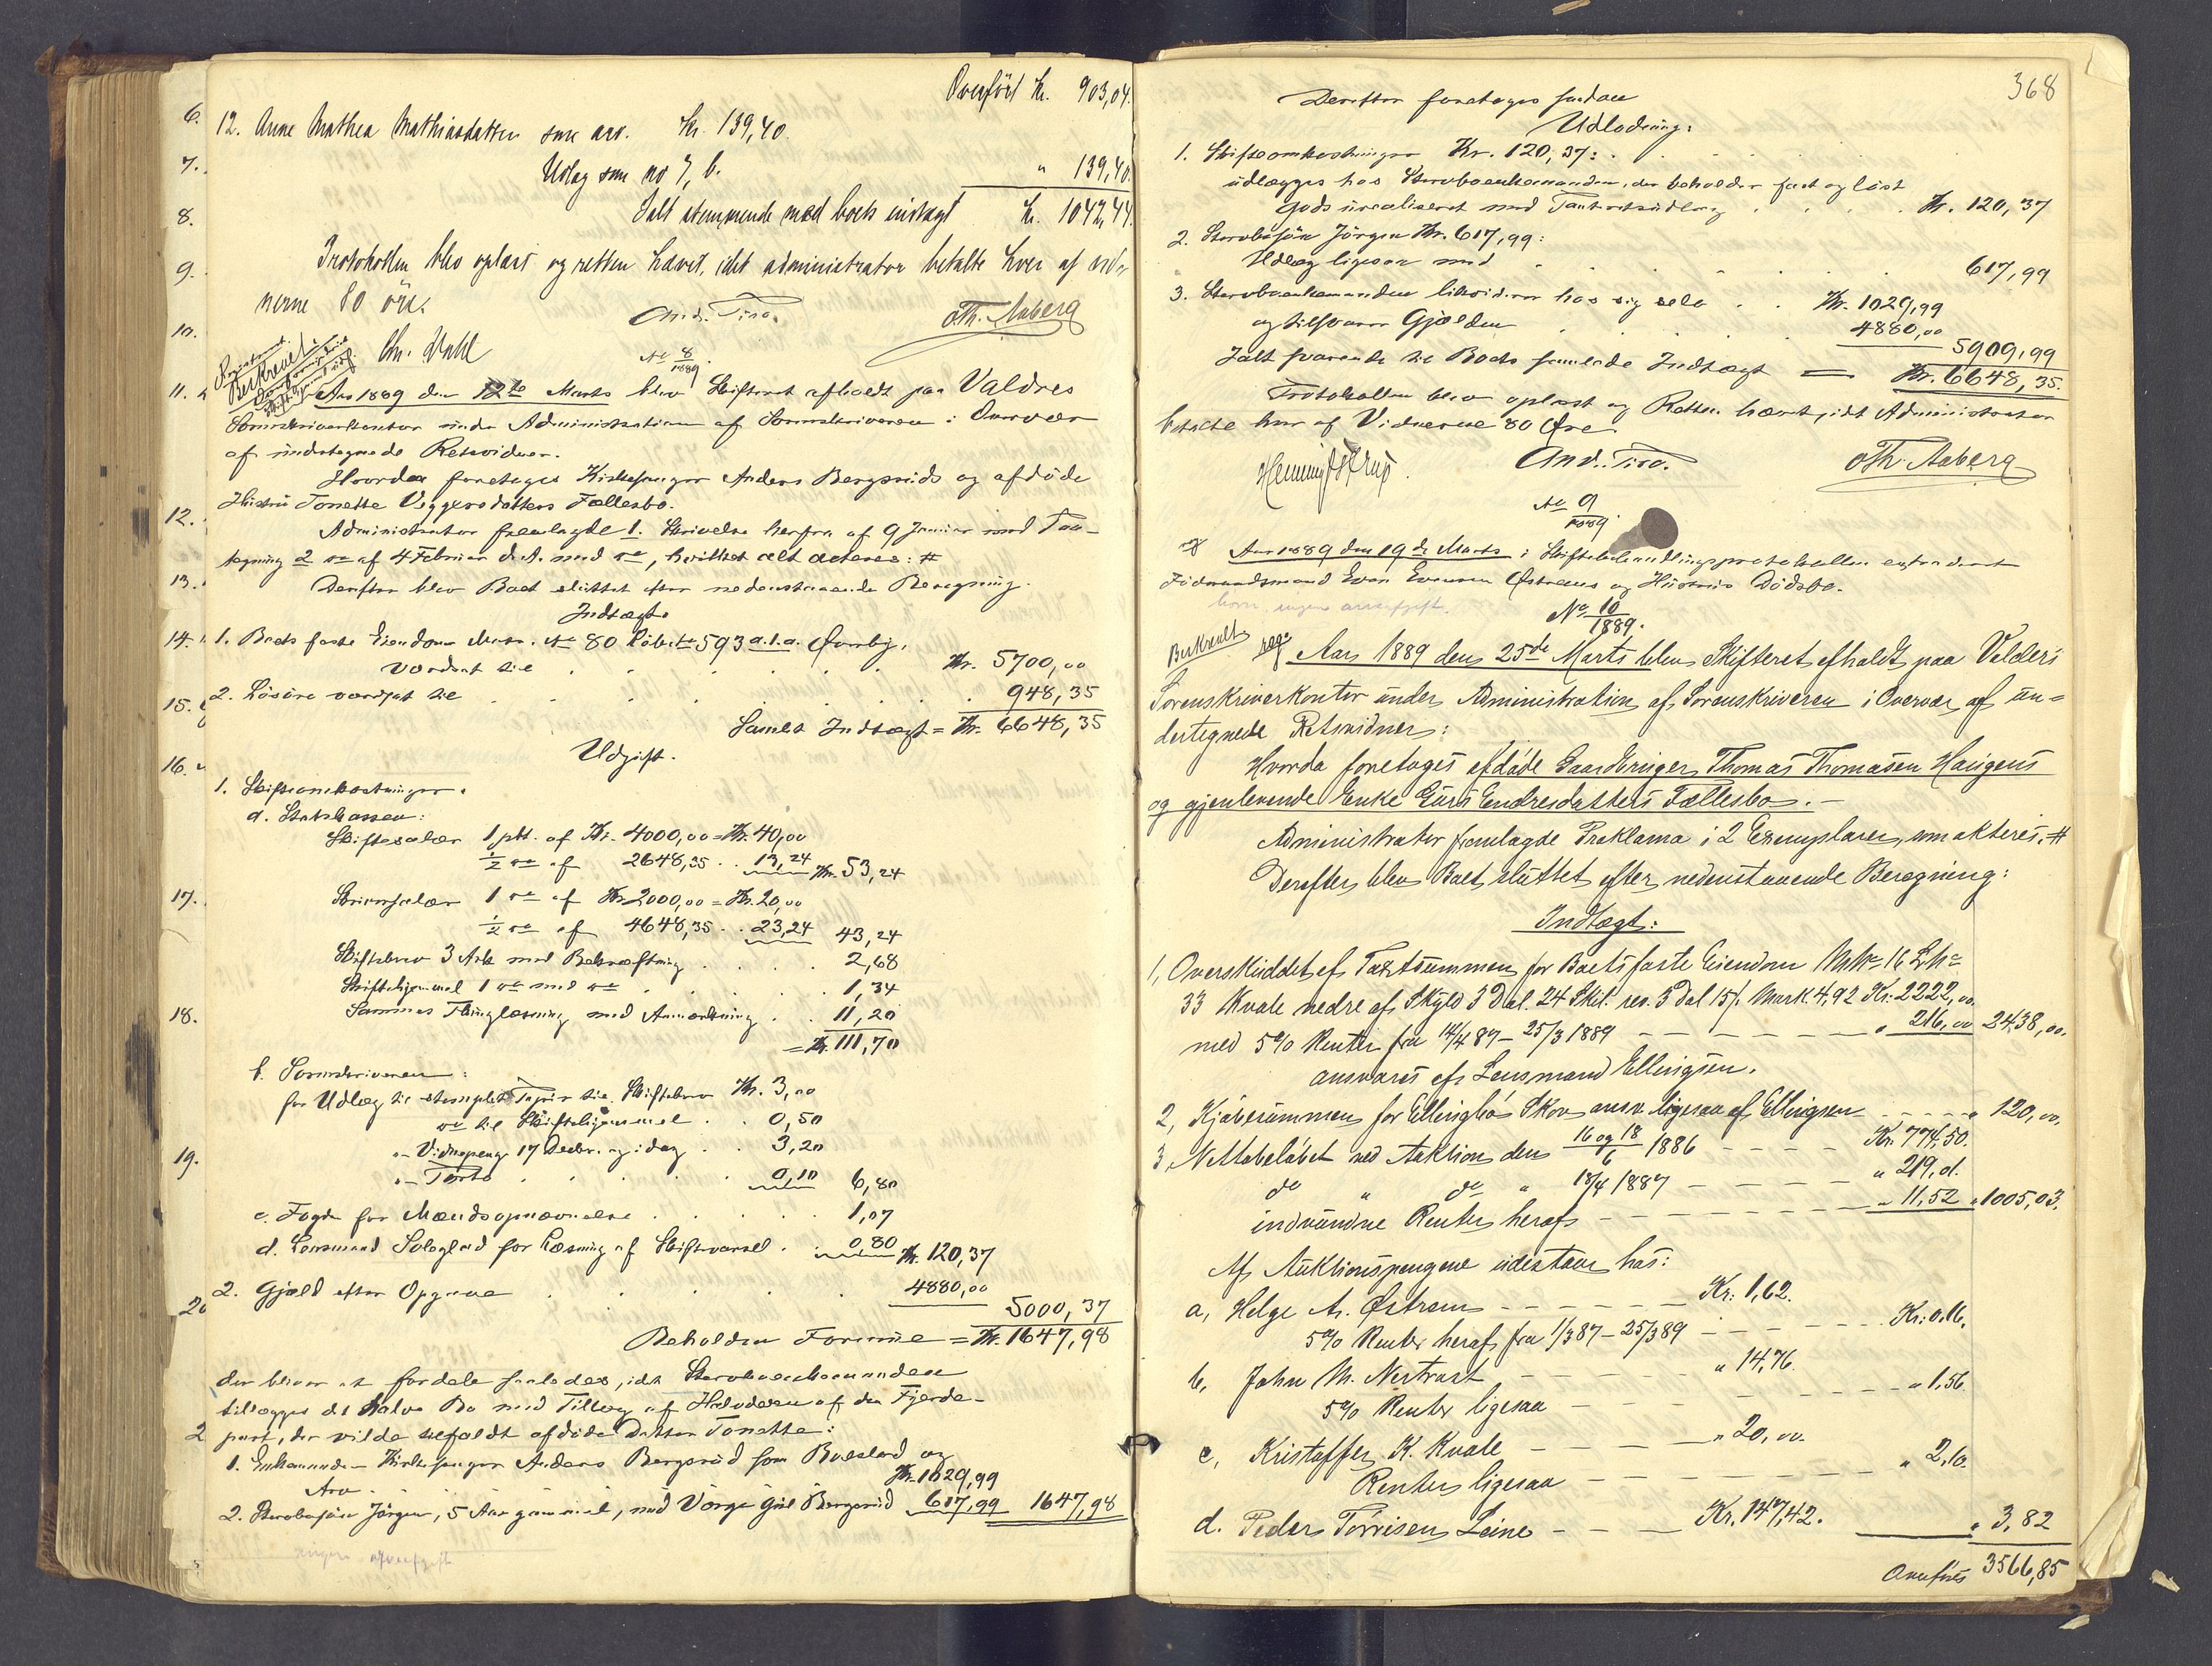 Overført Kr. 903,04.
12. Anne Mathea Mathiasdatter sum arv. Kr. 139,40.
Udlag som no 7, b. " 139,40.
Ialt stemmende med boets indtægt Kr. 1042,44.
Protokollen blev oplæst og retten hævet, idet administrator betalte hver af vid-
nerne 80 øre.
And. Tiro. Th. Aaberg
Chr. Dahl
No 8/1889.
Registreret.
Berkreret:
Aar 1889 den 12te Marts blev Skifteret afholdt paa Valdres
Sorenskriverkontor under Administration af Sorenskriveren i Overvær
af undertegnede Retsvidner.
Hvorda foretoges Kirkesanger Anders Bergsruds og afdøde
Hustru Tonette Viggersdatters Fællesbo.
Administrator fremlagde 1. Skrivelse herfra af 9 Januar med Paa-
tegning 2 do af 4 Februar d. A. med do, hvilket alt acteres: #
Derefter blev Boet sluttet efter nedenstaaende Beregning.
Indtægt.
1. Boets faste Eiendom Matr. No 80 Løbe No 593 a.1.a. Øvreby,
værdsat til Kr. 5700,00
2. Løsøre værdsat til 948,35
Samlet Indtægt = Kr. 6648,35
Udgift.
1. Skifteomkostninger.
a. Statskassen:
Skiftesalær 1 pct. af Kr. 4000,00 = Kr. 40,00
1/2 do af 2648,35 .. 13,24 Kr. 53,24
Skriversalær 1 do af Kr. 2000,00 = Kr. 20,00
1/2 do af 4648,35 .. 23,24 43,24
Skiftebrev 3 Ark med Bekræftning 2,68
Skiftehjemmel 1 do med do 1,34
Sammes Thinglæsning med Anmerkning 11,20
= Kr. 111,70
b. Sorenskriveren:
for Udlæg til stemplet Papir til Skiftebrev Kr. 3,00
do til Skiftehjemmel 0,50
"– Vidnepenge 17 Decbr. og idag 3,20
"– Porto 0,10 6,80
c. Fogden for Mændsopnævnelse 1,07
d. Lensmand Sologlad for Læsning af Skiftevarsel 0,80 Kr. 120,37
2. Gjæld efter Opgave 4880,00
5000,37
Beholden Formue = Kr. 1647,98
der bliver at fordele saaledes, idet Stervboenkemanden
tillægges det halve Bo med Tillæg af Halvdelen af den Fjerde-
part, der vilde tilfaldt afdøde Datter Tonette:
1. Enkemanden Kirkesanger Anders Bergsrud som Boeslod og
Arv Kr. 1029,99
2. Stervbosøn Jørgen, 5 Aar gammel, med Værge Gul. Bergsrud 617,99 1647,98
ingen arveafgift
6.
7.
8.
9.
10.
11.
12.
13.
14.
15.
16.
17.
18.
19.
20
2
368
Derefter foretoges saadan
Udlodning:
1. Skifteomkostninger Kr. 120,37:
udlægges hos Stervboenkemanden, der beholder fast og løst
Gods urealiseret med Panteretsudlæg Kr. 120,37
2. Stervbosøn Jørgen Kr. 617,99:
Udlæg ligesaa med 617,99
3. Stervboenkemanden likviderer hos sig selv Kr. 1029,99
og tilsvarer Gjælden 4880,00
5909,99
Ialt svarende til Boets samlede Indtægt = Kr. 6648,35.
Protokollen blev oplæst og Retten hævet, idet Administrator
betalte hver af Vidnerne 80 Øre.
And. Tiro. Th. Aaberg
No 9/1889.
Aar 1889 den 19de Marts i Skiftebehandlingsprotokollen extraderet
Føderaadsmand Even Evensen Østrems og Hustrus Dødsbo.
ingen arveafgift.
No 10/1889.
Berkreret
reg. Aar 1889 den 25de Marts blev Skifteret afholdt paa Valders
Sorenskriverkontor under Administration af Sorenskriveren i Overvær af un-
dertegnede Retsvidner:
Hvorda foretoges afdøde Gaardbruger Thomas Thomasen Haugens
og gjenlevende Enke Guri Endresdatters Fællesbo.–
Administrator fremlagde Proklama i 2 Exemplarer, som akteres. #
Derefter blev Boet sluttet efter nedenstaaende Beregning:
Indtægt:
1, Overskuddet af Taxtsummen for Boets faste Eiendom MNo 16 LNo
33 Kvale nedre af Skyld 3 Dal. 24 Skil. rev. 3 Dal 15 f. Mark 4,92 Kr. 2222,00
med 5% Renter fra 14/4 87 – 25/3 1889 " 216,00 2438,00.
ansvares af Lensmand Ellingsen.
2, Kjøbesummen for Ellingbø Skov ansv. ligesaa af Ellingsen " 120,00.
3, Nettobeløbet ved Auktion den 16 og 18/6 1886 Kr. 774,50.
do " do " 18/4 1887 " 219,01.
indvundne Renter heraf " 11,52 " 1005,03.
Af Auktionspengene udestaar hos:
a, Helge A. Østrem Kr: 1,62.
5% Renter heraf fra 1/3 87 – 25/3 89 Kr: 0,16.
b, John M. Nestrast " 14,76.
5% Renter ligesaa " 1,56
c, Kristoffer K. Kvale " 20,00.
Renter ligesaa " 2,10.
d. Peder Torrisen Leine Kr. 147,42.
" 3,82
Overføres 3566,85